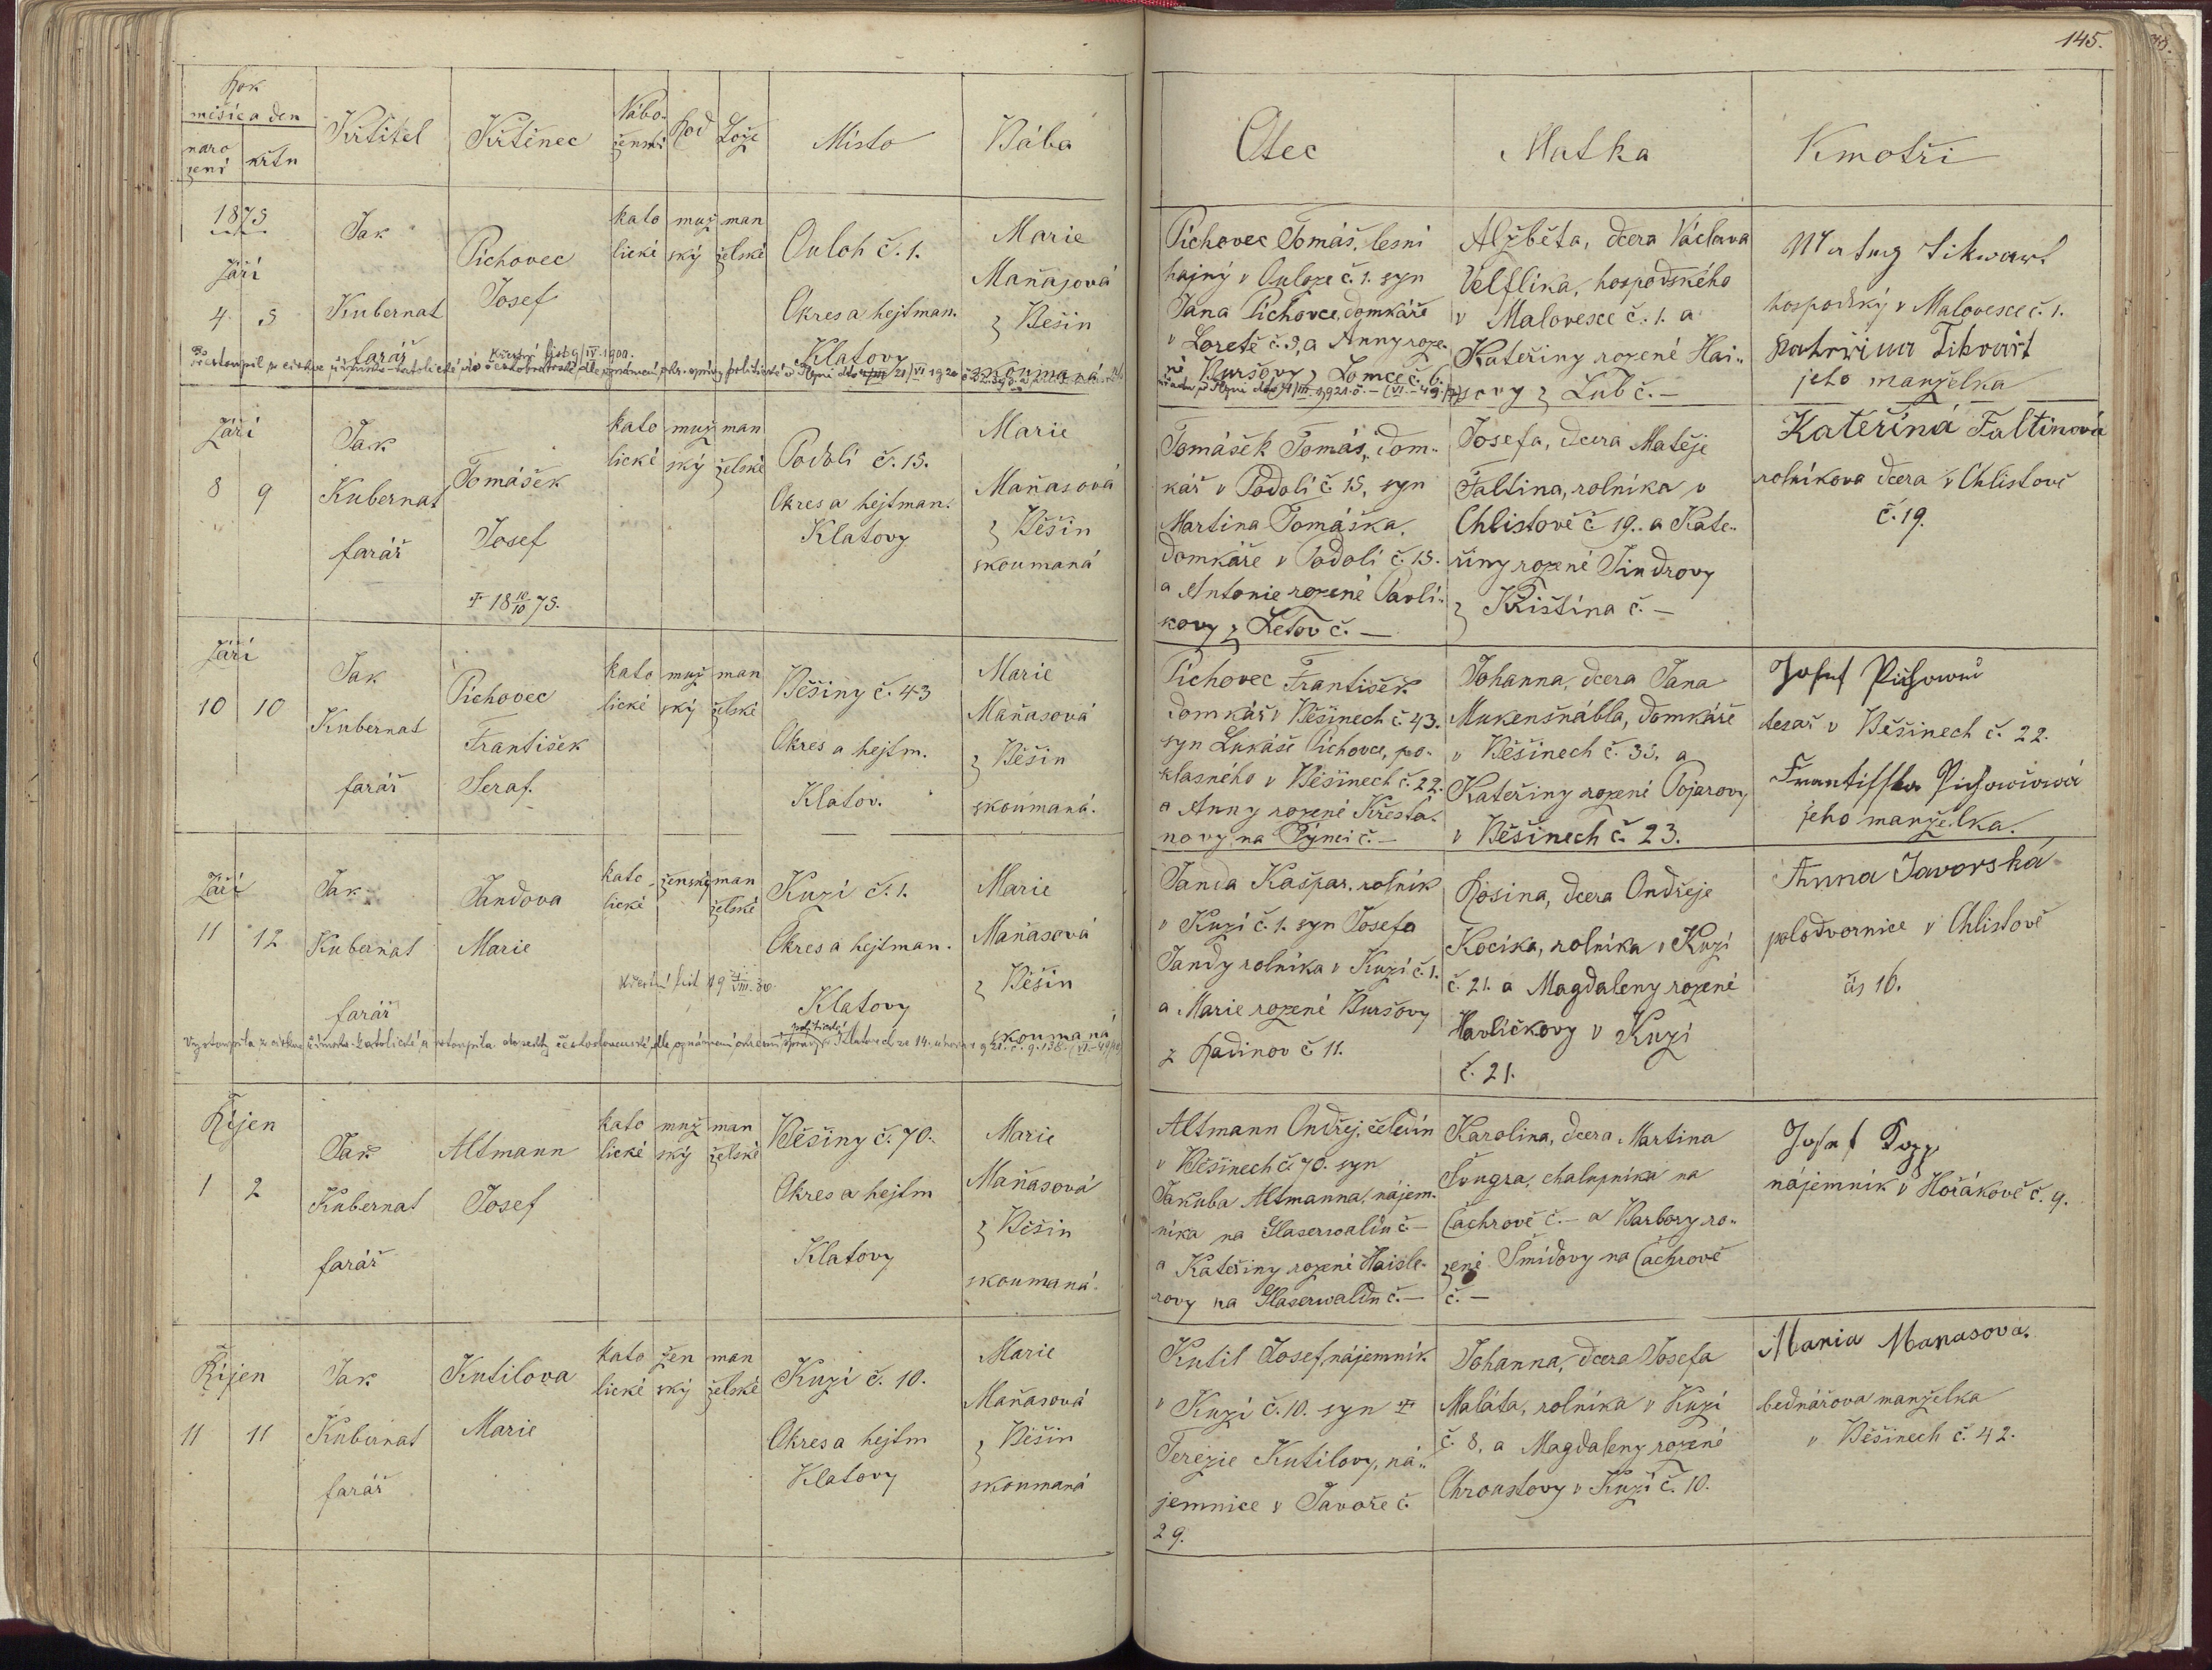 145.
Rok
měsíc a den
naro
zení
křtu
Křtitel
Křtěnec
Nábo-
ženství
Rod
Lože
Místo
Bába
Otec
Matka
Kmotři
1875
Září
4. 5
Jak
Kubernat
farář
Pichovec
Josef
kato
lické
muž
ský
man
želské
Ouloh č. 1.
Okres a hejtman.
Klatovy
Marie
Maňasová
z Běšin
zkoumaná
Křestní list 9/IV. 1900.
Pichovec Tomáš, lesní
hajný v Ouloze č. 1. syn
Jana Pichovce, domkáře
v Loretě č. 3, a Anny roze-
né Buršovy z Lomce č. 6.
Alžběta, dcera Václava
Velflíka, hospodského
v Malovesce č. 1. a
Kateřiny rozené Hai-
sovy z Lub č. —
hospodský v Malovesce č. 1.
jeho manželka
Září
8 9
Jak
Kubernat
farář
Tomášek
Josef
✝ 18 10/10 75.
kato
lické
muž
ský
man
želské
Podolí č. 15.
Okres a hejtman.
Klatovy
Marie
Maňasová
z Běšin
zkoumaná
Tomášek Tomáš, dom-
kář v Podolí č. 15, syn
Martina Tomáška,
domkáře v Podolí č. 15.
a Antonie rozené Pavlí-
kovy z Žetov č. —
Josefa, dcera Matěje
Faltina, rolníka v
Chlistově č. 19. a Kate-
řiny rozené Jindrovy
z Křištína č. —
Kateřina Faltinová
rolníkova dcera v Chlistově
č. 19.
Září
10 10
Jak
Kubernat
farář
Pichovec
František
Seraf.
kato
lické
muž
ský
man
želské
Běšiny č. 43
Okres a hejtm.
Klatov.
Marie
Maňasová
z Běšin
zkoumaná.
Pichovec František
domkář v Běšinech č. 43.
syn Lukáše Pichovce, po-
klasného v Běšinech č. 22.
a Anny rozené Křesťa-
novy na Týnci č. —
Johanna, dcera Jana
Mukenšnábla, domkáře
v Běšinech č. 33. a
Kateřiny rozené Pojarovy
v Běšinech č. 23.
Josef Pichovec
tesař v Běšinech č. 22.
Františka Pichovcová
jeho manželka.
Září
11 12
Jak
Kubernat
farář
Jandova
Marie
kato
lické
ženský
man
želské
Kuzí č. 1.
Okres a hejtman.
Klatovy
Marie
Maňasová
z Běšin
zkoumaná
Janda Kašpar, rolník
v Kuzí č. 1. syn Josefa
Jandy rolníka v Kuzí č. 1.
a Marie rozené Buršovy
z Radinov č. 11.
Rosina, dcera Ondřeje
Kocika, rolníka v Kuzí
č. 21. a Magdaleny rozené
Havlíčkovy v Kuzi
č. 21.
Anna Javorská
polodvornice v Chlistově
čís 16.
Říjen
1 2
Jak
Kubernat
farář
Altmann
Josef
kato
lické
muž
ský
man
želské
Běšiny č. 70.
Okres a hejtm
Klatovy
Marie
Maňasová
z Běšin
zkoumaná.
Altmann Ondřej, čeledín
v Běšinech č. 70. syn
Jakuba Altmanna, nájem-
níka na Glaserwaldu č. —
a Kateřiny rozené Haisle-
rovy na Glaserwaldu č. —
Karolina, dcera Martina
Šungra, chalupníka na
Čachrově č. — a Barbory ro-
zené Šmídovy na Čachrově
č. —
nájemník v Hořákově č. 9.
Říjen
11 11
Jak
Kubernat
farář
Kutilova
Marie
kato
lické
žen
ský
man
želské
Kuzí č. 10.
Okres a hejtm
Klatovy
Marie
Maňasová
z Běšin
zkoumaná
Kutil Josef, nájemník
v Kuzí č. 10. syn ✝
Terezie Kutilovy, ná-
jemnice v Javoře č.
29.
Johanna, dcera Josefa
Maláta, rolníka v Kuzí
č. 8, a Magdaleny rozené
Chroustovy v Kuzí č. 10.
Maria Manasova.
bednářova manželka
v Běšinech č. 42.